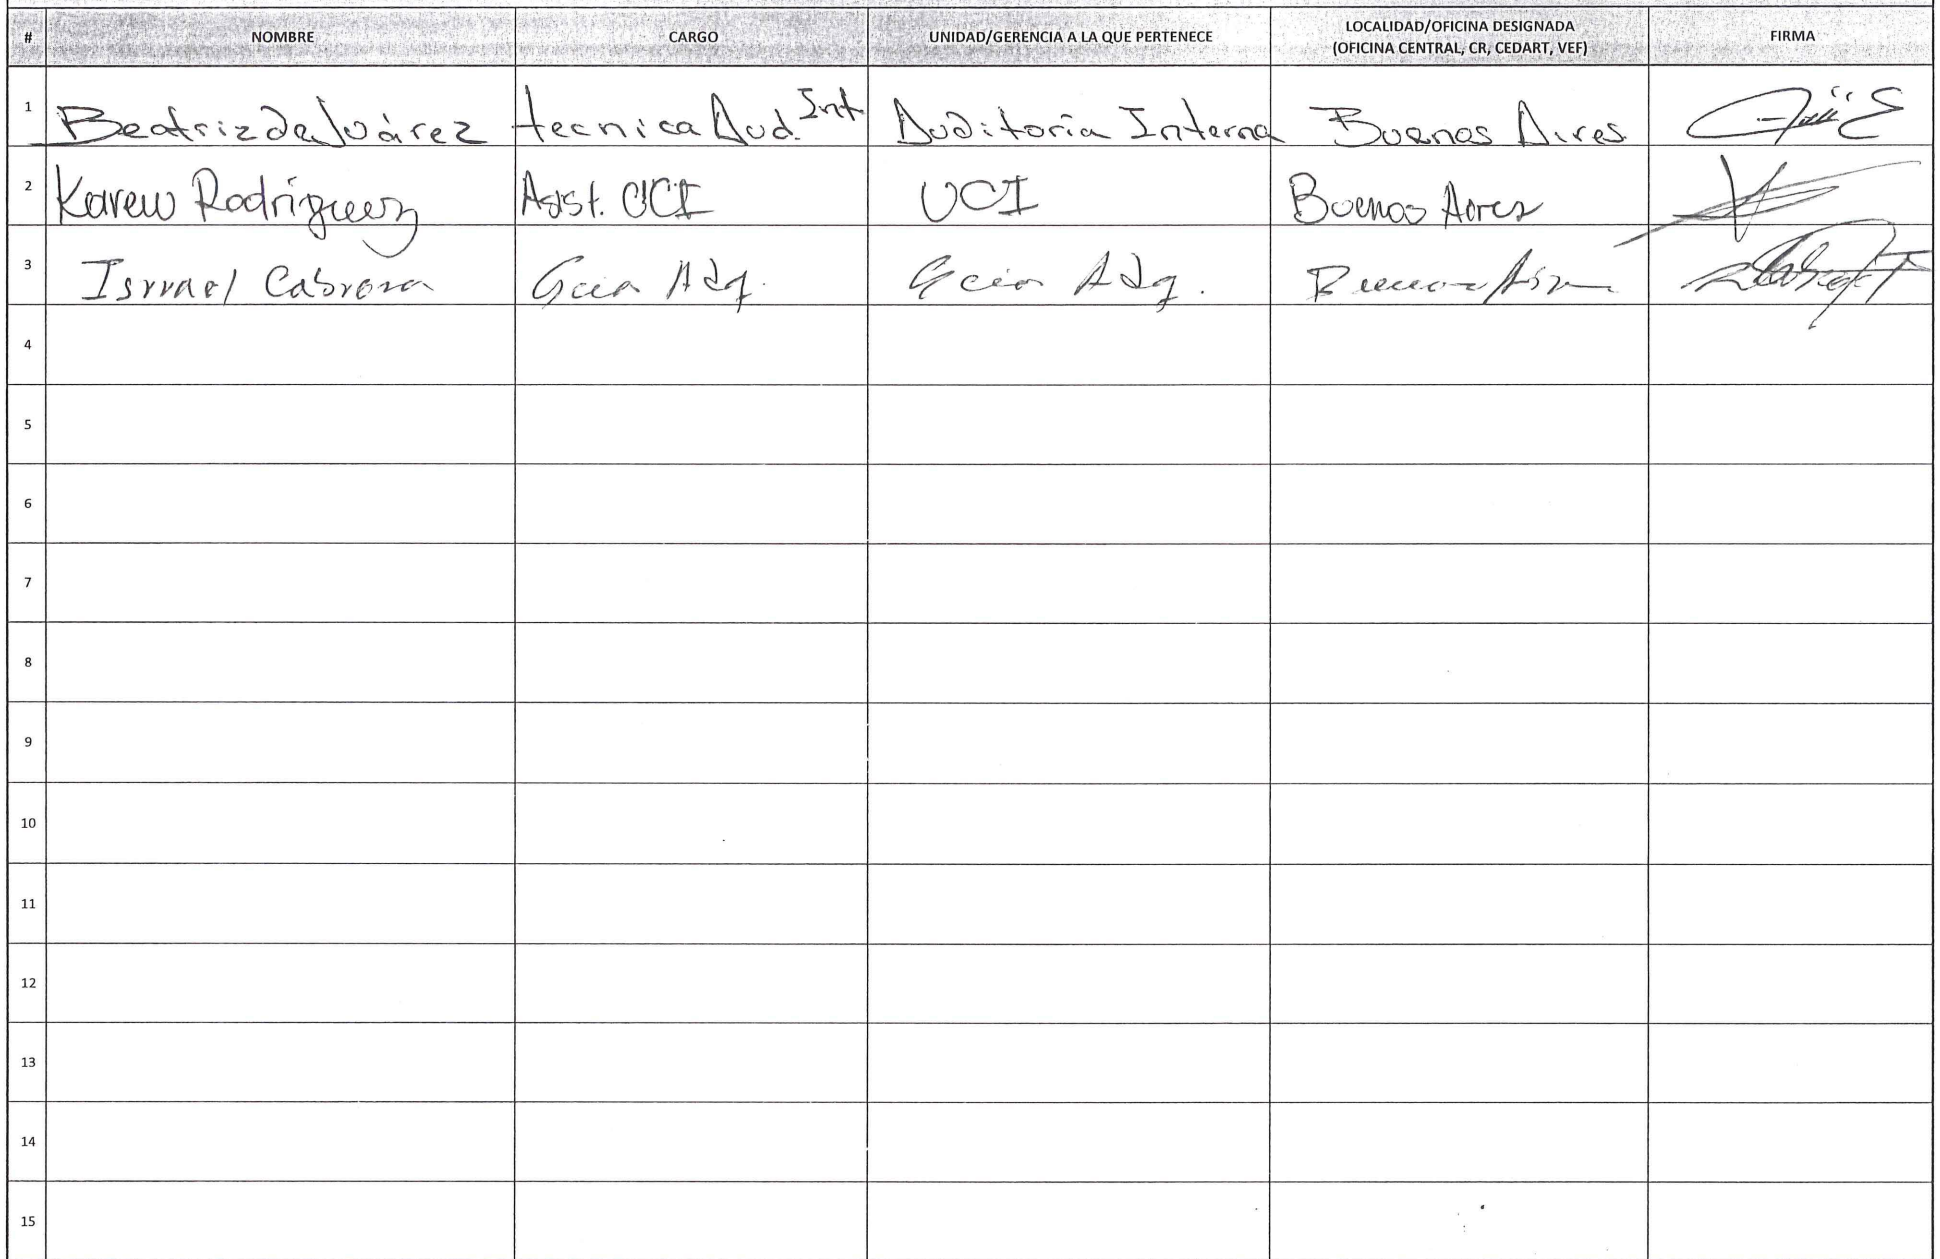 # NOMBRE CARGO UNIDAD/GERENCIA A LA QUE PERTENECE LOCALIDAD/OFICINA DESIGNADA (OFICINA CENTRAL, CR, CEDART, VEF) FIRMA
1 Beatriz de Juárez tecnica Aud. Int Auditoría Interna Buenos Aires
2 Karen Rodríguez Asist. UCI UCI Buenos Aires
3 Isrrael Cabrera Adq. Adq. Buenos Aires
4
5
6
7
8
9
10
11
12
13
14
15